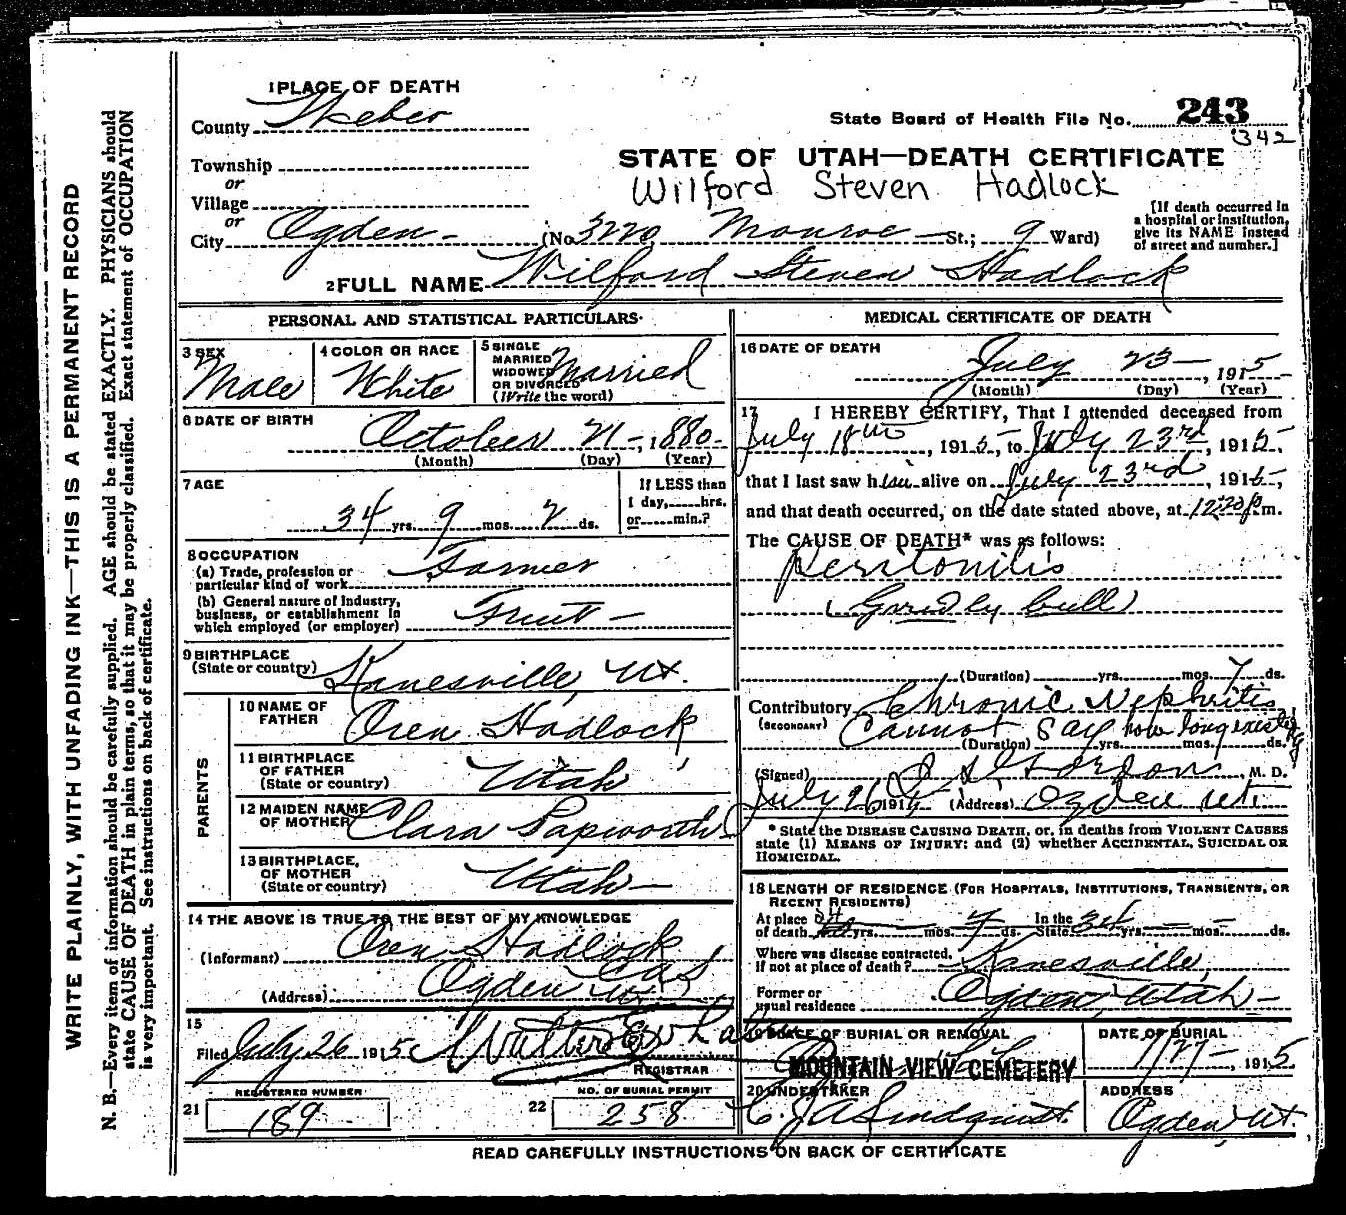 WRITE PLAINLY, WITH UNFADING INK—THIS IS A PERMANENT RECORD
N. B.—Every item of information should be carefully supplied. AGE should be stated EXACTLY. PHYSICIANS should
state CAUSE OF DEATH in plain terms, so that it may be properly classified. Exact statement of OCCUPATION
is very important. See instructions on back of certificate.
1 PLACE OF DEATH
County Weber
Township
or
Village
or
City Ogden - (No. 3220 Monroe St.; 9 Ward)
State Board of Health File No. 243
342
STATE OF UTAH—DEATH CERTIFICATE
Wilford Steven Hadlock
[If death occurred in
a hospital or institution,
give its NAME instead
of street and number.]
2 FULL NAME Wilford Steven Hadlock
PERSONAL AND STATISTICAL PARTICULARS
3 SEX
Male
4 COLOR OR RACE
White
5 SINGLE
MARRIED
WIDOWED
OR DIVORCED
(Write the word)
Married
6 DATE OF BIRTH
October 21-, 1880-
(Month) (Day) (Year)
7 AGE
34 yrs. 9 mos. 2 ds.
If LESS than
1 day,......hrs.
or......min.?
8 OCCUPATION
(a) Trade, profession or
particular kind of work
Farmer
(b) General nature of Industry,
business, or establishment in
which employed (or employer)
Fruit -
9 BIRTHPLACE
(State or country)
Kanesville, Ut.
PARENTS
10 NAME OF
FATHER
Oren Hadlock,
11 BIRTHPLACE
OF FATHER
(State or country)
Utah
12 MAIDEN NAME
OF MOTHER
Clara Papworth
13 BIRTHPLACE,
OF MOTHER
(State or country)
Utah -
14 THE ABOVE IS TRUE TO THE BEST OF MY KNOWLEDGE
(Informant) Oren Hadlock
(Address) Ogden
15
Filed July 26 1915
REGISTRAR
REGISTERED NUMBER
21 189
NO. OF BURIAL PERMIT
22 258
MEDICAL CERTIFICATE OF DEATH
16 DATE OF DEATH
July 23-, 1915-
(Month) (Day) (Year)
17 I HEREBY CERTIFY, That I attended deceased from
July 18th, 1915, to July 23rd, 1915,
that I last saw him alive on July 23rd, 1915,
and that death occurred, on the date stated above, at 12:20 p.m.
The CAUSE OF DEATH* was as follows:
Peritonitis
(Duration) yrs. mos. 7 ds.
Contributory Chronic Nephritis
(SECONDARY) Cannot say how long existing
(Duration) yrs. mos. ds.
(Signed) Gordon, M. D.
July 26 191 (Address) Ogden Ut.
* State the DISEASE CAUSING DEATH, or, in deaths from VIOLENT CAUSES
state (1) MEANS OF INJURY; and (2) whether ACCIDENTAL, SUICIDAL OR
HOMICIDAL.
18 LENGTH OF RESIDENCE (FOR HOSPITALS, INSTITUTIONS, TRANSIENTS, OR
RECENT RESIDENTS)
At place
of death yrs. mos. 7 ds. In the State 34 yrs. mos. ds.
Where was disease contracted,
If not at place of death? Kanesville,
Former or
usual residence Ogden Utah -
19 PLACE OF BURIAL OR REMOVAL
MOUNTAIN VIEW CEMETERY
DATE OF BURIAL
7/27-, 1915
20 UNDERTAKER
C. J. A. Lindquist.
ADDRESS
Ogden, Ut.
READ CAREFULLY INSTRUCTIONS ON BACK OF CERTIFICATE